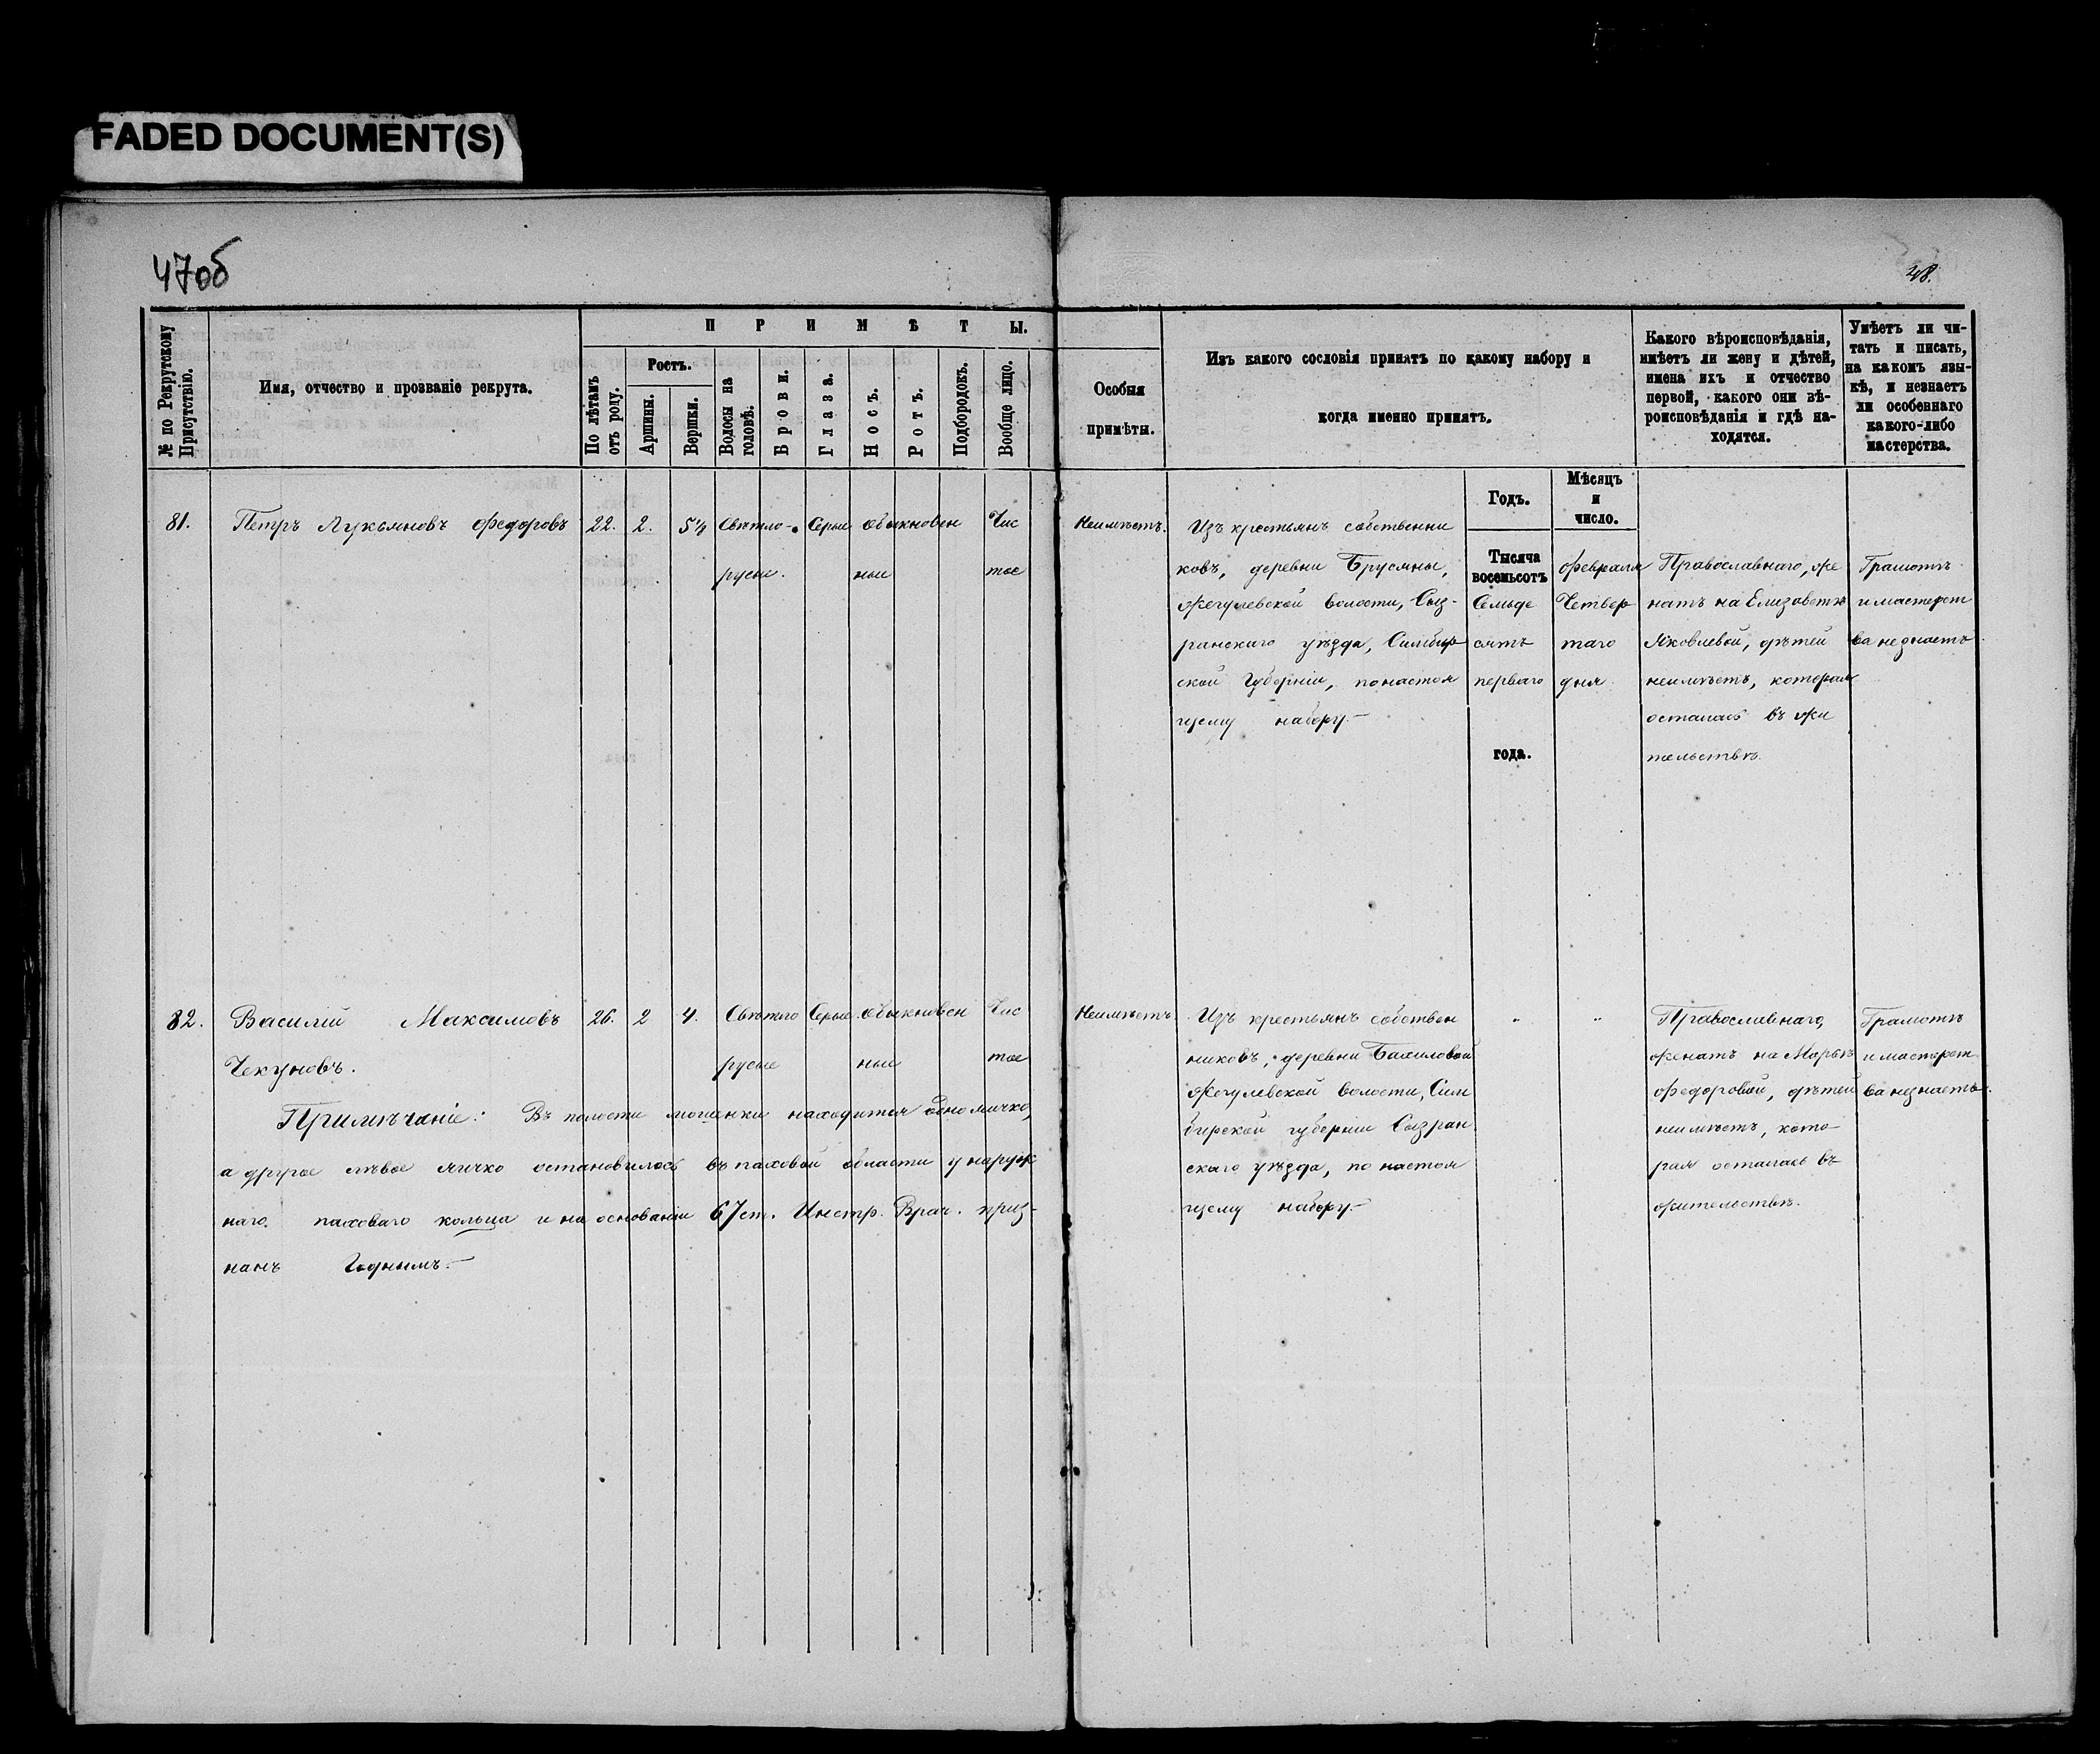 FADED DOCUMENT(S)
47об
48.
№ по Рекрутскому Присутствію.
Имя, отчество и прозваніе рекрута.
ПРИМѢТЫ.
По лѣтамъ отъ роду.
Ростъ.
Аршины.
Вершки.
Волосы на головѣ.
Брови.
Глаза.
Носъ.
Ротъ.
Подбородокъ.
Вообще лицо.
Особыя
примѣты.
Изъ какого сословія принятъ по какому набору и
когда именно принятъ.
Какого вѣроисповѣданія,
имѣетъ ли жену и дѣтей,
имена ихъ и отчество
первой, какого они вѣ-
роисповѣданія и гдѣ на-
ходятся.
Умѣетъ ли чи-
тать и писать,
на каком язы-
кѣ, и незнаетъ
ли особеннаго
какого-либо
мастерства.
Годъ.
Мѣсяцъ
и
число.
81. Петръ Лукьяновъ Федоровъ 22. 2. Свѣтло- Серые обыкновен Чис
русые. ные тое
Неимѣетъ.
Изъ крестьянъ собственни
ковъ, деревни Брусяны,
Жегулевской волости, Сыз-
ранскаго уѣзда, Симбир
ской Губерніи, понастоя
щему набору.-
Тысяча
восемьсотъ
Семьде
сятъ
перваго
года.
Февраля
Четвер
таго
дня.
Православнаго, же
натъ на Елизаветѣ
Яковлевой, дѣтей
неимѣетъ, которая
осталась въ жи
тельствѣ.
Грамотѣ
и мастерст
ва незнаетъ.
82. Василій Максимовъ 26. 2 4. Свѣтло Серые. обыкновен Чис
Чекуновъ. русые ные тое
Примѣчаніе: Въ полости мошонки находится одно яичко,
а другое лѣвое яичко остановилось въ паховой области у наруж
наго. паховаго кольца и на основаніи 67 ст. Инстр. Врач. приз-
нанъ Годнымъ.-
Неимѣетъ
Изъ крестьянъ собствен
никовъ, деревни Бахиловой
Жегулевской волости, Сим
бирской губерніи Сызран
скаго уѣзда, по настоя
щему набору.-
" "
Православнаго,
женатъ на Марьѣ
Федоровой, дѣтей
неимѣетъ, кото-
рая осталась въ
жительствѣ.
Грамотѣ
и мастерст
ва незнаетъ.